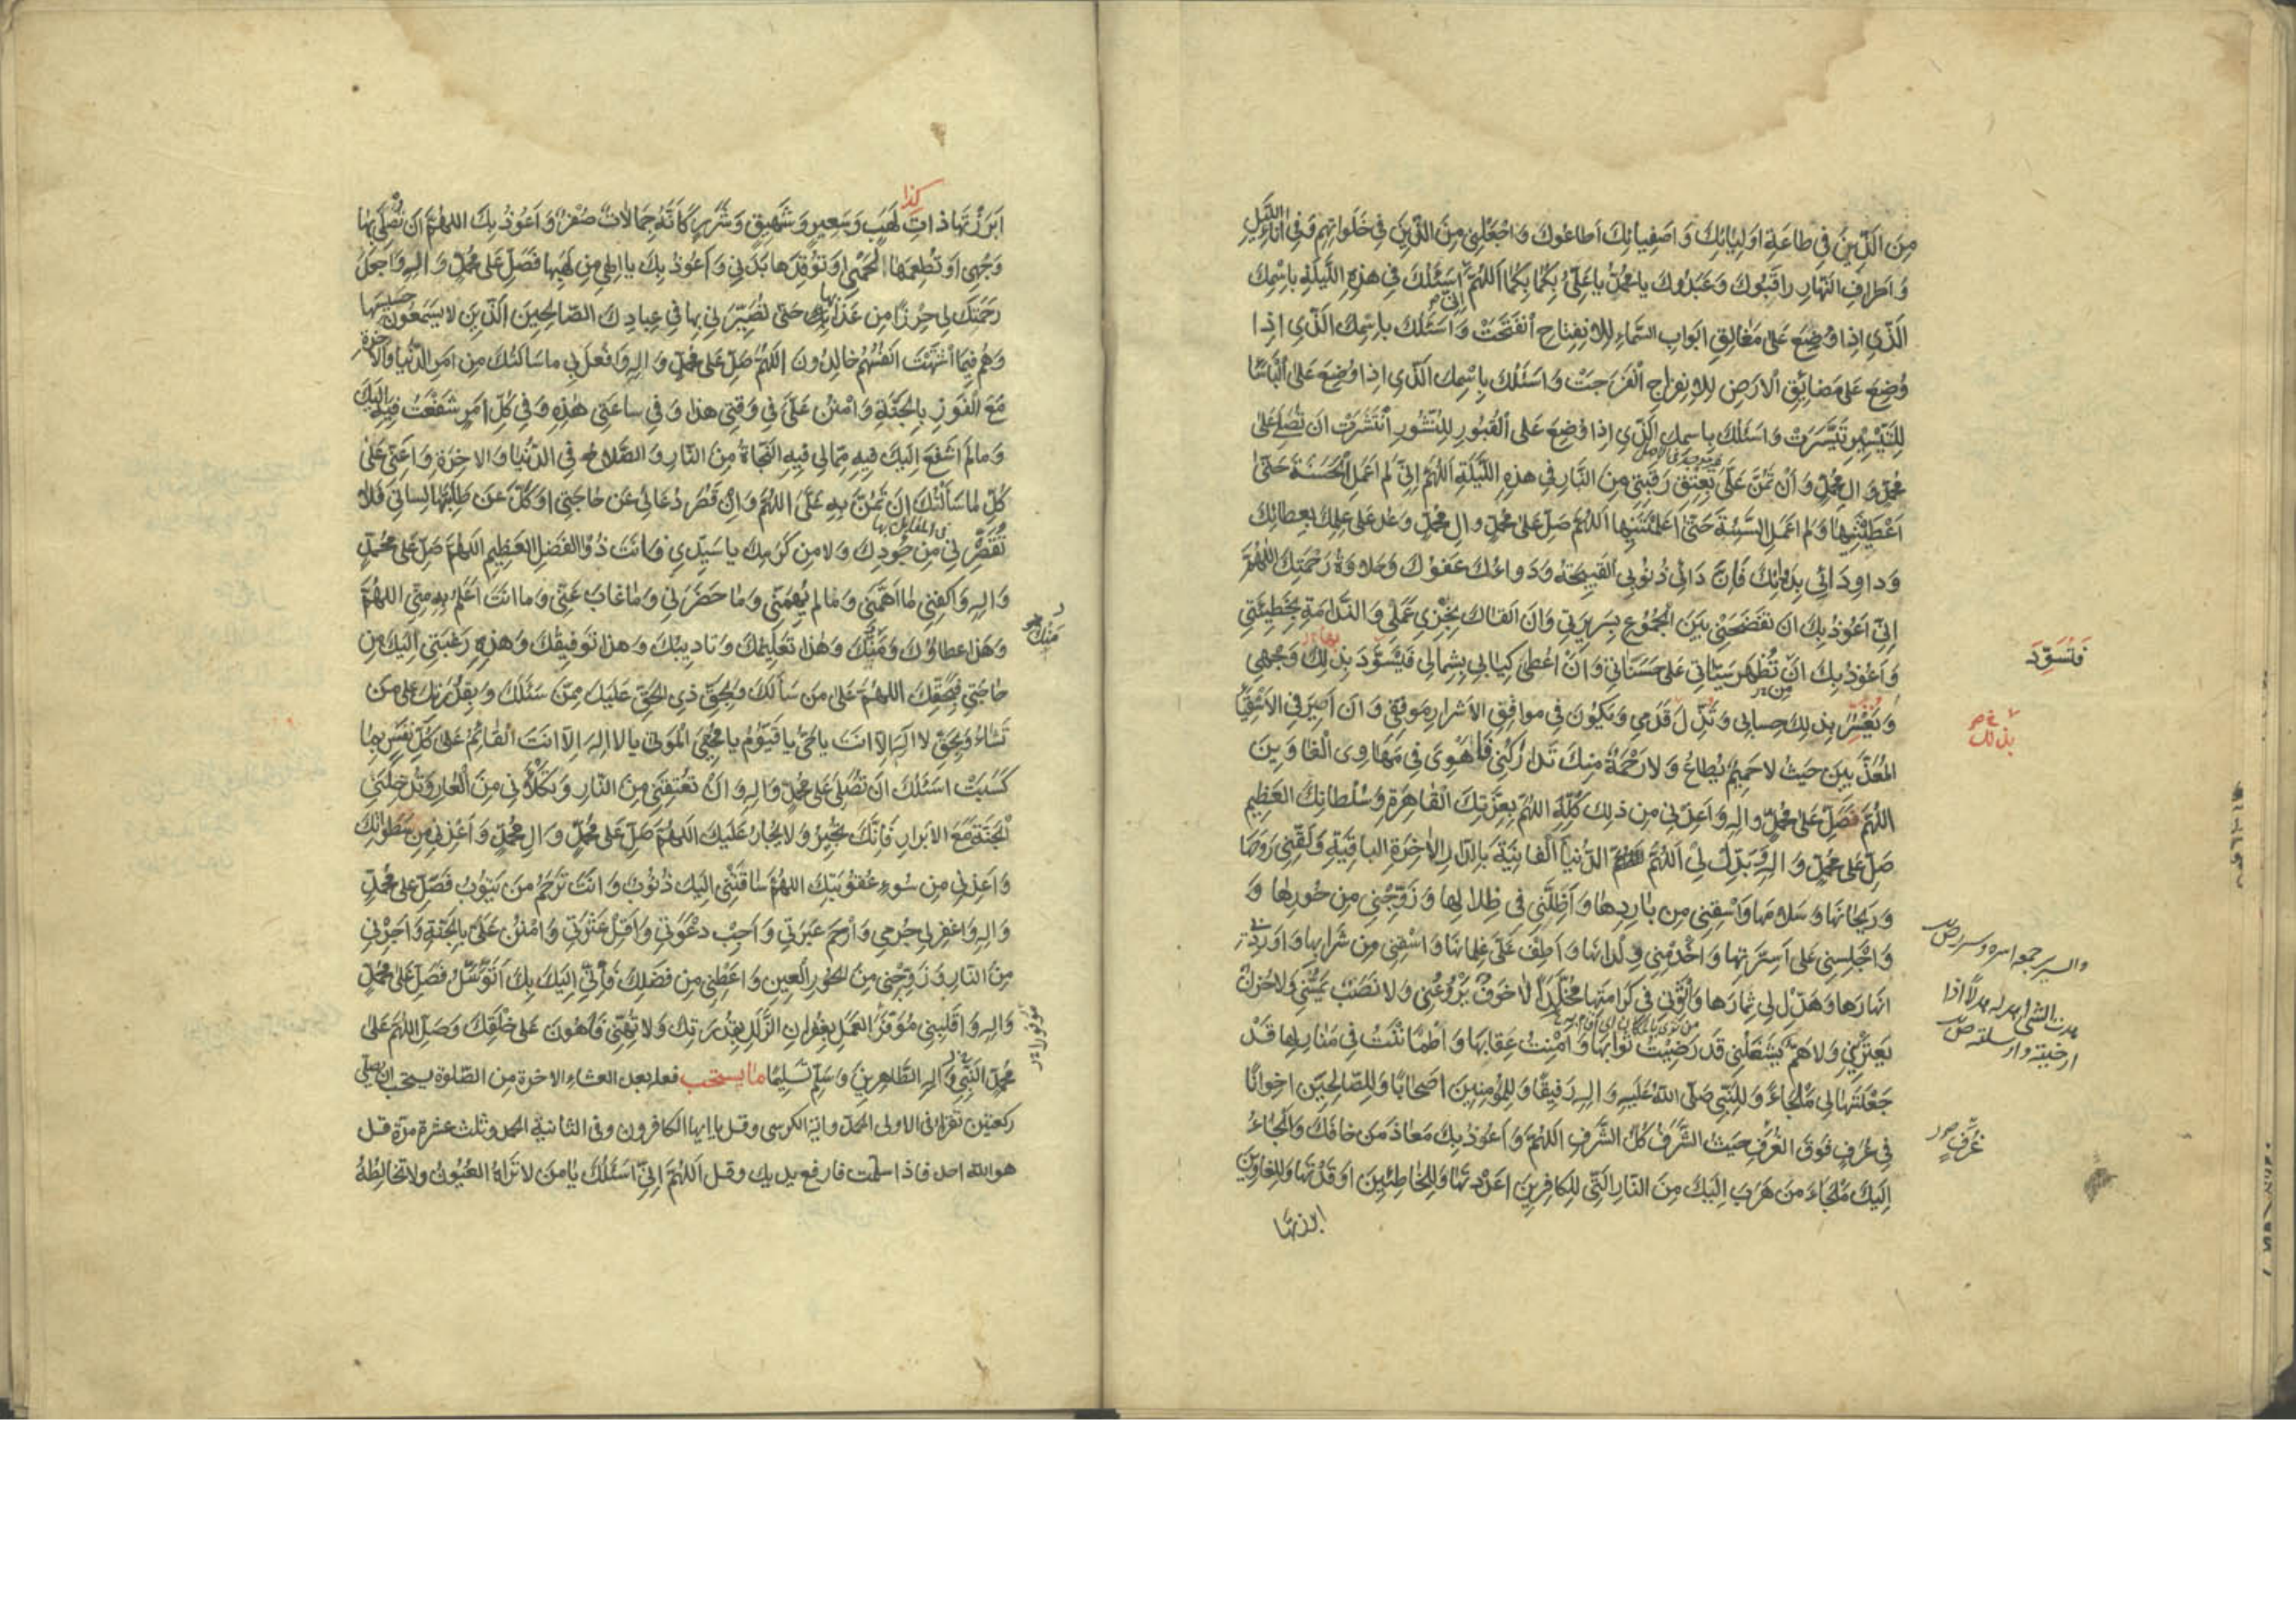 مِنَ الَّذِينَ فِي طاعَةِ اَولِيائِكَ وَ اَصفِيائِكَ اَطاعُوكَ وَ اجْعَلنِي مِنَ الَّذِينَ فِي خَلَواتِهِم وَفِي اٰناءِ اللَّيلِ
وَ اَطرافِ النَّهارِ راقَبُوكَ وَ عَبَدُوكَ يا مُحَمَّدُ يا عَلِيُّ بِكُما بِكُما اَللّهُمَّ اِنّي اَسئَلُكَ فِي هذِهِ اللَّيلَةِ بِاسْمِكَ
الَّذِي اِذا وُضِعَ عَلى مَغالِقِ اَبوابِ السَّماءِ لِلاِنفِتاحِ انفَتَحَتْ وَ اَسئَلُكَ بِاسمِكَ الَّذِي اِذا
وُضِعَ عَلى مَضائِقِ الاَرضِ لِلاِنفِراجِ انْفَرَجَتْ وَ اَسئَلُكَ بِاِسْمِكَ الَّذِي اِذا وُضِعَ عَلَى البَأسآءِ
لِلتَّيْسِيرِ تَيَسَّرَتْ وَ اَسئَلُكَ بِاسمِكَ الَّذِي اِذا وُضِعَ عَلَى القُبُورِ لِلنُّشُورِ انْتَشَرَتْ اَن تُصَلِّيَ عَلى
مُحَمَّدٍ وَ الِ مُحَمَّدٍ وَ اَنْ تَمُنَّ عَلَيَّ بِعِتقِ رَقَبَتِي مِنَ النَّارِ فِي هذِهِ اللَّيلَةِ اَللّهُمَّ اِنّي لَم اَعمَلِ الحَسَنَةَ حَتّى
اَعْطَيْتَنِيها وَ لَم اَعمَلِ السَّيِّئَةَ حَتّى اَعلَمْتَنِيها اَللّهُمَّ صَلِّ عَلى مُحَمَّدٍ وَ الِ مُحَمَّدٍ وَ عُد عَلى عِلمِكَ بِعَطائِكَ
وَ داوِ دَائِي بِدَوائِكَ فَاِنَّ دَائِي ذُنُوبِي القَبِيحَةُ وَ دَواءُكَ عَفوُكَ وَ حَلاوَةُ رَحْمَتِكَ اَللّهُمَّ
اِنّي اَعُوذُ بِكَ اَن تَفضَحَنِي بَينَ الجُمُوعِ بِسَرِيرَتِي وَ اَنْ اَلقاكَ بِخِزيِ عَمَلِي وَ النَّدامَةِ بِخَطِيئَتِي
وَ اَعُوذُ بِكَ اَنْ تُظهِرَ سَيِّئاتِي عَلى حَسَناتِي وَ اَنْ اُعْطى كِتابِي بِشِمالِي فَيَسوَدَّ بِذلِكَ وَجْهِي
فَتَسوَدَّ
وَ يَعْسُرَ بِذلِكَ حِسابِي وَ تَزِلَّ قَدَمِي وَ يَكُونَ فِي مَواقِفِ الاَشرارِ مَوقِفِي وَ اَن اَصِيرَ فِي الاَشْقِيآءِ
بذلك
المُعَذَّبِينَ حَيثُ لا حَمِيمٌ يُطاعُ وَ لا رَحْمَةٌ مِنكَ تَدارَكُنِي فَاَهْوِيَ فِي مَهاوِي الغاوِينَ
اَللّهُمَّ فَصَلِّ عَلى مُحَمَّدٍ وَ الِهِ وَ اَعِذْنِي مِن ذلِكَ كُلِّهِ اَللّهُمَّ بِعِزَّتِكَ القاهِرَةِ وَ سُلْطانِكَ العَظِيمِ
صَلِّ عَلى مُحَمَّدٍ وَ الِهِ وَ بَدِّل لِيَ اَللّهُمَّ الدُّنيا الفانِيَةَ بِالدّارِ الاٰخِرَةِ الباقِيَةِ وَ لَقِّنِي رَوحَها
وَ رَيحانَها وَ سَلامَها وَ اسْقِنِي مِن بارِدِها وَ اَظِلَّنِي فِي ظِلالِها وَ زَوِّجْنِي مِن حُورِها وَ
وَ اَجْلِسنِي عَلى اَسِرَّتِها وَ اَخْدِمْنِي وِلدانَها وَ اَطِف عَلَيَّ غِلمانَها وَ اسْقِنِي مِن شَرابِها وَ اَورِدْنِي
اَنهارَها وَ هَدِّل لِي ثِمارَها وَ اثْوِنِي فِي كَرامَتِها مُخَلَّدًا لا خَوفٌ يَرُوعُنِي وَ لا نَصَبٌ يَمَسُّنِي وَ لا حُزنٌ
يَعتَرِينِي وَ لا هَمٌّ يَشغَلُنِي قَد رَضِيتُ ثَوابَها وَ اَمِنْتُ عِقابَها وَ اطْمَأنَنْتُ فِي مَنازِلِها قَدْ
جَعَلْتَها لِي مَلْجَأً وَ لِلنَّبِيِّ صَلَّى اللهُ عَلَيهِ وَ الِهِ رَفِيقًا وَ لِلمُؤمِنِينَ اَصحابًا وَ لِلصّالِحِينَ اِخوانًا
فِي غُرَفٍ فَوقَ الغُرَفِ حَيثُ الشَّرَفُ كُلُّ الشَّرَفِ اَللّهُمَّ وَ اَعُوذُ بِكَ مَعاذَ مَن خافَكَ وَ اَلجَأُ
غُرَفٍ
اِلَيكَ مَلجَأَ مَن هَرَبَ اِلَيكَ مِنَ النّارِ الَّتِي لِلكافِرِينَ اَعدَدتَها وَ لِلخاطِئِينَ اَوقَدْتَها وَ لِلغاوِينَ
ابرزتها
كذا
اَبرَزْتَها ذاتَ لَهَبٍ وَ سَعِيرٍ وَ شَهِيقٍ وَ شَرَرٍ كَاَنَّهُ جِمالاتٌ صُفرٌ وَ اَعُوذُ بِكَ اللهُمَّ اَن تُصلِيَ بِها
وَجْهِي اَو تُطعِمَها لَحْمِي اَو تُوقِدَها بَدَنِي وَ اَعُوذُ بِكَ يا اِلهِي مِن لَهَبِها فَصَلِّ عَلى مُحَمَّدٍ وَ الِهِ وَ اجعَلْ
رَحمَتَكَ لِي حِرزًا مِن عَذابِها حَتّى تُصَيِّرَنِي بِها فِي عِبادِكَ الصّالِحِينَ الَّذِينَ لا يَسمَعُونَ حَسِيسَها
وَ هُم فِيما اشتَهَت اَنفُسُهُم خالِدُونَ اَللّهُمَّ صَلِّ عَلى مُحَمَّدٍ وَ الِهِ وَ افعَل بِي ما سَاَلتُكَ مِن اَمرِ الدُّنيا وَ الاٰخِرَةِ
مَعَ الفَوزِ بِالجَنَّةِ وَ امنُن عَلَيَّ فِي وَقتِي هذا وَ فِي ساعَتِي هذِهِ وَ فِي كُلِّ اَمرٍ شَفَعْتُ فِيهِ اِلَيكَ
وَ ما لَم اَشفَع اِلَيكَ فِيهِ مِمّا لِي فِيهِ النَّجاةُ مِنَ النّارِ وَ الصَّلاحُ فِي الدُّنيا وَ الاٰخِرَةِ وَ اَعِنِّي عَلى
كُلِّ ما سَاَلتُكَ اَن تَمُنَّ بِهِ عَلَيَّ اَللّهُمَّ وَ اِن قَصُرَ دُعائِي عَن حاجَتِي اَو كَلَّ عَن طَلَبِها لِسانِي فَلا
تُقَصِّر بِي مِن جُودِكَ وَ لا مِن كَرَمِكَ يا سَيِّدِي فَاَنتَ ذُو الفَضلِ العَظِيمِ اَللّهُمَّ صَلِّ عَلى مُحَمَّدٍ
وَ الِهِ وَ اكفِنِي ما اَهَمَّنِي وَ ما لَم يُهِمَّنِي وَ ما حَضَرَنِي وَ ما غابَ عَنِّي وَ ما اَنتَ اَعلَمُ بِهِ مِنِّي اَللّهُمَّ
وَ هذا عَطاؤُكَ وَ مَنُّكَ وَ هذا تَعلِيمُكَ وَ تادِيبُكَ وَ هذا تَوفِيقُكَ وَ هذِهِ رَغبَتِي اِلَيكَ مِن
حاجَتِي فَبِحَقِّكَ اللهُمَّ عَلى مَن سَاَلَكَ وَ بِحَقِّ ذِي الحَقِّ عَلَيكَ مِمَّن سَئَلَكَ وَ بِقُدرَتِكَ عَلى مَن
تَشاءُ وَ بِحَقِّ لا اِلهَ اِلّا اَنتَ يا حَيُّ يا قَيُّومُ يا مُحْيِيَ المَوتى يا لا اِلهَ اِلّا اَنتَ القائِمُ عَلى كُلِّ نَفسٍ بِما
كَسَبَتْ اَسئَلُكَ اَن تُصَلِّيَ عَلى مُحَمَّدٍ وَ الِهِ وَ اَنْ تُعتِقَنِي مِنَ النّارِ وَ تَكلَأَنِي مِنَ العارِ وَ تُدخِلَنِي
الجَنَّةَ مَعَ الاَبرارِ فَاِنَّكَ تُجِيرُ وَ لا يُجارُ عَلَيكَ اَللّهُمَّ صَلِّ عَلى مُحَمَّدٍ وَ الِ مُحَمَّدٍ وَ اَعِذنِي مِن سَطَواتِكَ
وَ اَعِذنِي مِن سُوءِ عُقُوبَتِكَ اَللّهُمَّ ساقَتْنِي اِلَيكَ ذُنُوبٌ وَ اَنتَ تَرحَمُ مَن يَتُوبُ فَصَلِّ عَلى مُحَمَّدٍ
وَ الِهِ وَ اغفِر لِي جُرمِي وَ ارْحَم عَبْرَتِي وَ اَجِب دَعْوَتِي وَ اَقِلْ عَثرَتِي وَ امْنُن عَلَيَّ بِالجَنَّةِ وَ اَجِرْنِي
مِنَ النّارِ وَ زَوِّجْنِي مِنَ الحُورِ العِينِ وَ اَعطِنِي مِن فَضلِكَ فَاِنّي اِلَيكَ بِكَ اَتَوَسَّلُ فَصَلِّ عَلى مُحَمَّدٍ
وَ الِهِ وَ اقلِبنِي مُوَفَّرَ العَمَلِ بِغُفرانِ الزَّلَلِ بِقُدرَتِكَ وَ لا تُهِنِّي فَاَهُونَ عَلى خَلقِكَ وَ صَلِّ اللّهُمَّ عَلى
مُحَمَّدٍ النَّبِيِّ وَ الِهِ الطّاهِرِينَ وَ سَلِّم تَسلِيمًا ما يستحب فعله بعد العشاء الاخرة من الصّلوة يستحب ان يصلّى
ركعتين تقرا فى الاولى الحمد واية الكرسى وقل يا ايها الكافرون وفى الثانية الحمد وثلث عشرة مرّة قل
هو الله احد فاذا سلّمت فارفع يديك وقل اَللّهُمَّ اِنّي اَسئَلُكَ يا مَن لا تَراهُ العُيُونُ وَ لا تُخالِطُهُ